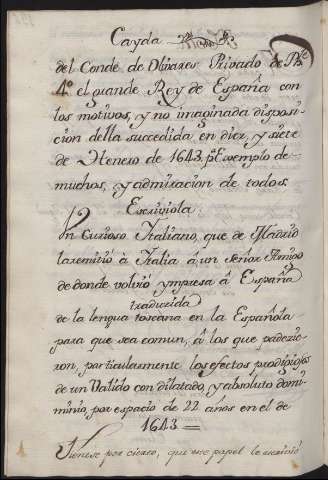 Cayda
del Conde de Olivares Privado de Phe
4º el grande Rey de España con
los motivos, y no imaginada disposi
cion della succedida en diez, y siete
de Henero de 1643. pª Exemplo de
muchos, y admiracion de todos.
Escriviola
Vn Curioso Italiano, que de Madrid
la remitió à Italia à un Señor Amigo
de donde volvió ympresa à España
traduzida
de la lengua toscana en la Española
para que sea comun, â los que padezie
ron, particularmente los efectos prodigiosos
de un Valido con dilatado, y absoluto domi
minio, por espacio de 22 años en el de
1643 =
Tienese por cierto, que este papel le escrivió